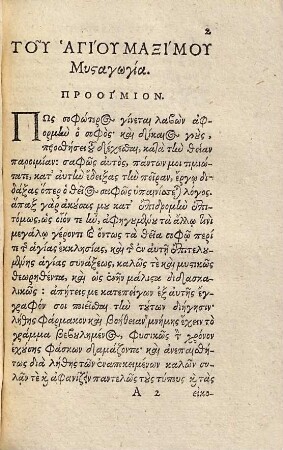 2
ΤΟΥ ἉΓΙΟΥ ΜΑΞΙΜΟΥ
Μυςαγωγία.
ΠΡΟΟΙΜΙΟΝ.
Πῶς σοφώτερος γίνεται λαβὼν ἀφ
ορμὴν ὁ σοφὸς· καὶ δίκαιος γνοὺς,
προσθήσει τοῦ δέχεσθαι, κατὰ τὴν θείαν
παροιμίαν: σαφῶς αὐτὸς, πάντων μοι τιμιώ
τατε, κατ' αὐτὴν ἔδειξας τὴν πεῖραν, ἔργῳ δι
δάξας ὅπερ ὁ θεῖος σοφῶς ὑπαινίσσεται λόγος.
ἅπαξ γὰρ ἀκούσας μου κατ' ἐπιδρομὴν ἐπι
τόμως, ὡς οἷόν τε ἦν, ἀφηγουμένου τὰ ἄλλῳ τινὶ
μεγάλῳ γέροντι καὶ ὄντως τὰ θεῖα σοφῷ περί
τε τ ἁγίας ἐκκλησίας, καὶ τ ἐν αὐτῇ ἐπιτελου
μένης ἁγίας συνάξεως, καλῶς τε καὶ μυστικῶς
θεωρηθέντα, καὶ ὡς ἐνῆν μάλιστα διδασκα
λικῶς: ἀπῄτεις με κατεπείγων ἐξ αὐτῆς ἔγ
γραφόν σοι ποιεῖσθαι τὴν τούτων διήγησιν·
λήθης φάρμακον καὶ βοήθειαν μνήμης ἔχειν τὸ
γράμμα βεβουλημένος, φυσικῶς τ χρόνον
ἐχούσης φάσκων δαμάζοντα· καὶ ἀνεπαισθή
τως διὰ λήθης τῶν ἐναποκειμένων καλῶν συ
λᾶν τε καὶ ἀφανίζειν παντελῶς τοὺς τύπους καὶ τὰς
A 2 εἰκο-